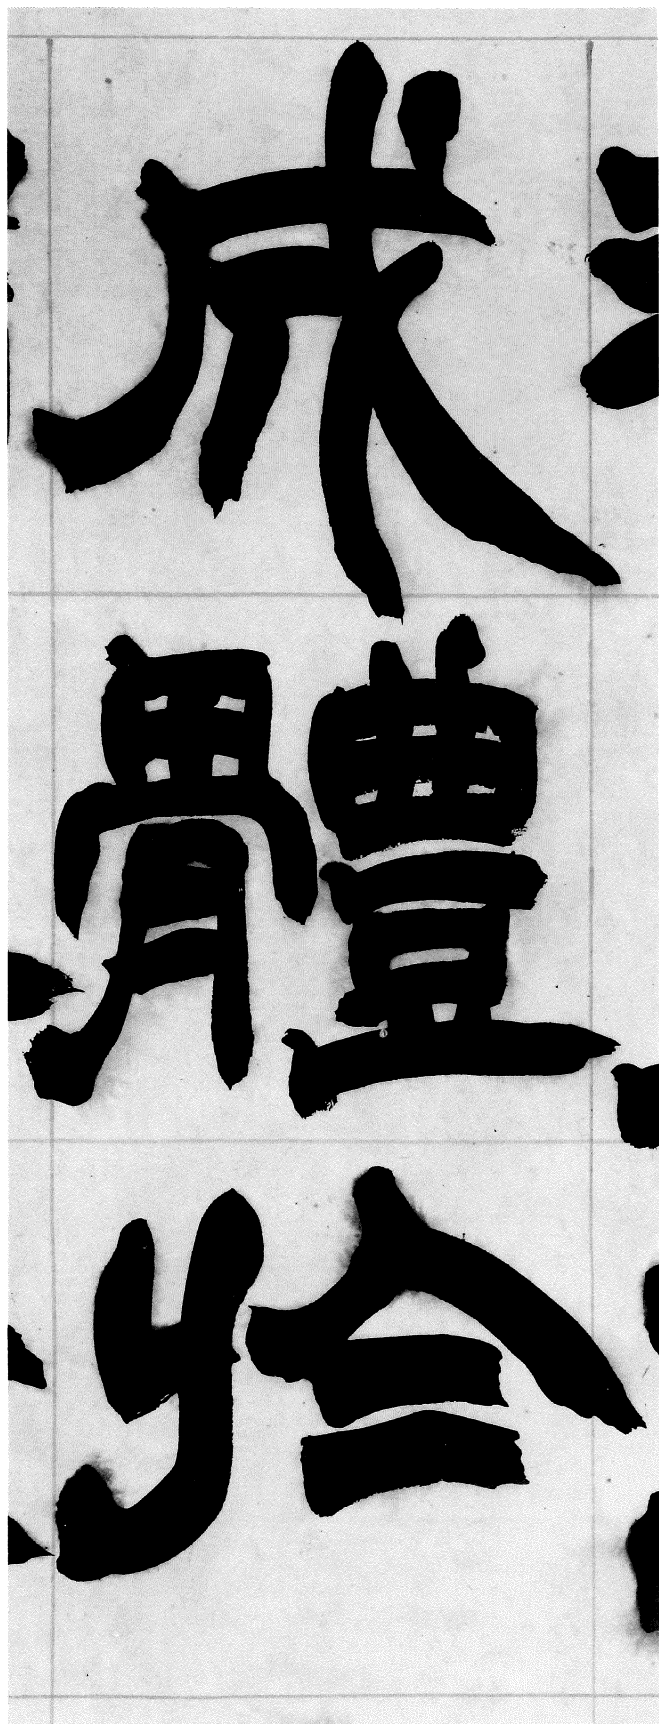 成體於